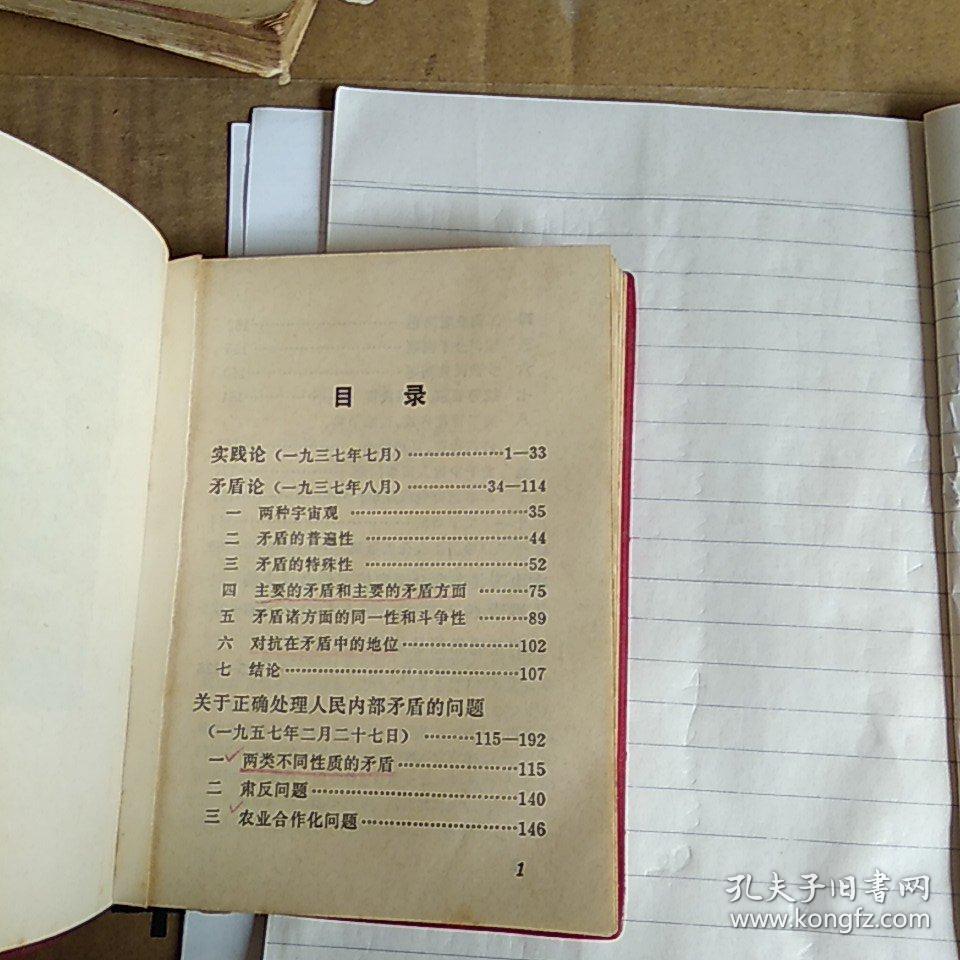 目 录
实践论（一九三七年七月）………………1—33
矛盾论（一九三七年八月）……………34—114
一 两种宇宙观 ……………………………35
二 矛盾的普遍性 …………………………44
三 矛盾的特殊性 …………………………52
四 主要的矛盾和主要的矛盾方面 ………75
五 矛盾诸方面的同一性和斗争性 ………89
六 对抗在矛盾中的地位…………………102
七 结论……………………………………107
关于正确处理人民内部矛盾的问题
（一九五七年二月二十七日）………115—192
一 两类不同性质的矛盾…………………115
二 肃反问题………………………………140
三 农业合作化问题………………………146
1
孔夫子旧書网
www.kongfz.com